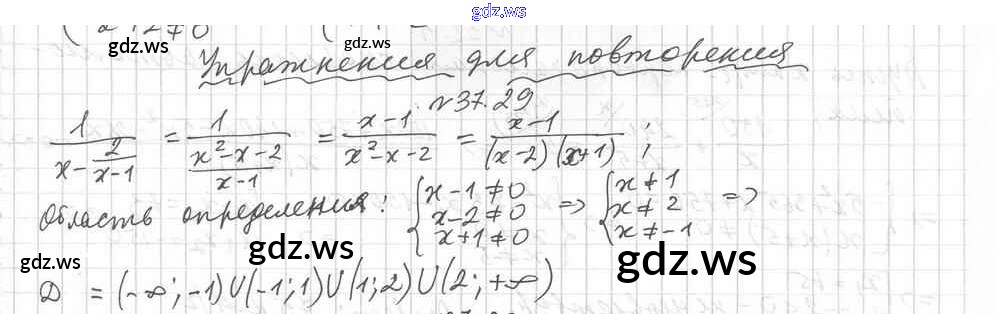 gdz.ws
x + 2 ≠ 0
gdz.ws
gdz.ws
Упражнения для повторения
№37.29
1/(x - 2/(x-1)) = 1/((x² - x - 2)/(x-1)) = (x-1)/(x² - x - 2) = (x-1)/((x-2)(x+1));
Область определения: { x - 1 ≠ 0, x - 2 ≠ 0, x + 1 ≠ 0 => { x ≠ 1, x ≠ 2, x ≠ -1 =>
gdz.ws
gdz.ws
gdz.ws
D = (-∞; -1) U (-1; 1) U (1; 2) U (2; +∞)